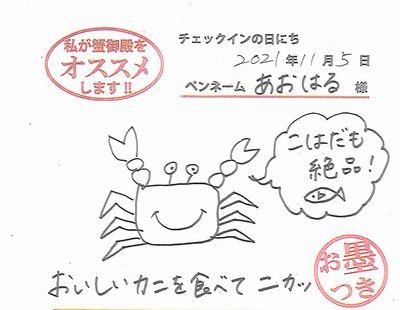 私が蟹御殿を
オススメ
します!!
チェックインの日にち
2021年11月5日
ペンネーム あおはる 様
こはだも
絶品！
おいしいカニを食べて ニカッ
お墨
つき